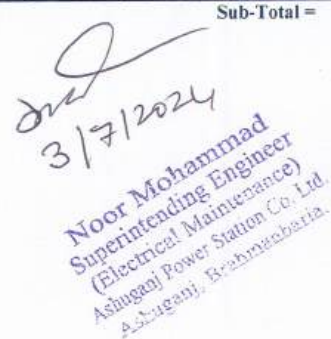 Sub-Total =
3/7/2024
Noor Mohammad
Superintending Engineer
(Electrical Maintenance)
Ashuganj Power Station Co. Ltd.
Ashuganj, Brahmanbaria.